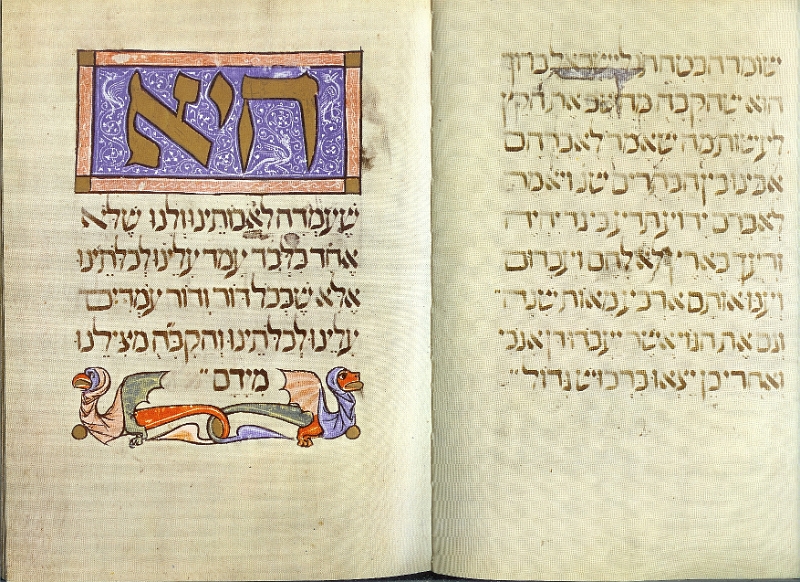 שומר הבטחתו לישראל ברוך
הוא שהקבה מחשב את הקץ
לעשות מה שאמר לאברהם
אבינו בין הבתרים שנ ויאמר
לאברם ידוע תדע כי גר יהיה
זרעך בארץ לא להם ועבדום
וענו אותם ארבע מאות שנה
וגם את הגוי אשר יעבדו דן אנכי
ואחרי כן יצאו ברכוש גדול
היא
שעמדה לאבתינו ולנו שלא
אחד בלבד עמד עלינו לכלתינו
אלא שבכל דור ודור עמדים
עלינו לכלתינו והקבה מצילנו
מידם